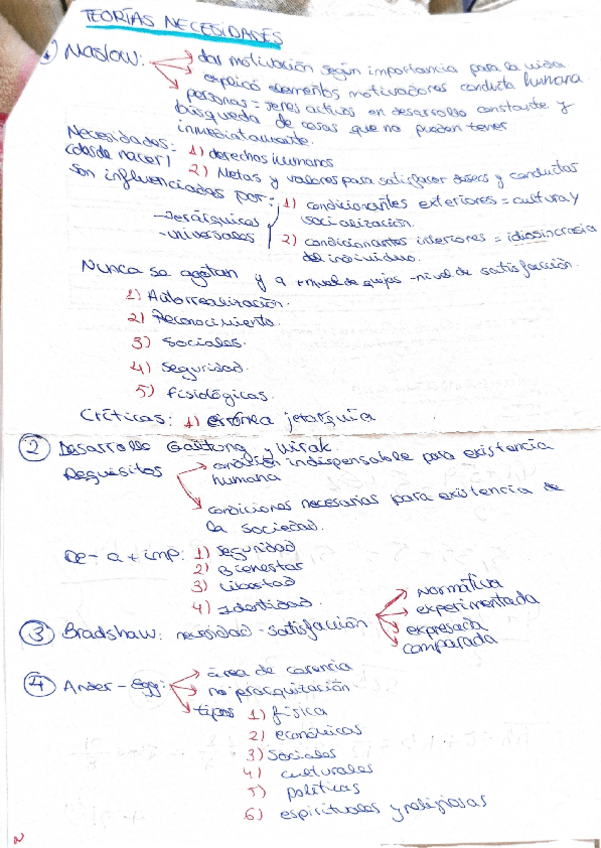 TEORÍAS NECESIDADES
1) Maslow: → dar motivación según importancia para la vida
→ explicó elementos motivadores conducta humana
→ personas = seres activos en desarrollo constante y
búsqueda de cosas que no pueden tener
inmediatamente.
Necesidades: 1) derechos humanos
(desde nacer) 2) Metas y valores para satisfacer deseos y conductas
son influenciadas por: 1) condicionantes exteriores = cultura y
socialización.
- Jerárquicas
- universales
2) condicionantes interiores = idiosincrasia
del individuo.
Nunca se agotan y a + nivel de quejas - nivel de satisfacción.
1) Autorrealización.
2) Reconocimiento.
3) Sociales.
4) Seguridad.
5) Fisiológicas.
Críticas: 1) errónea jerarquía
2 Desarrollo Galtung y Wirak
Requisitos → condición indispensable para existencia
humana
→ condiciones necesarias para existencia de
la sociedad.
De - a + imp: 1) Seguridad
2) Bienestar
3) Libertad
4) Identidad.
3 Bradshaw: necesidad - satisfacción → Normativa
→ experimentada
→ expresada
→ comparada
4 Ander-Egg: → área de carencia
→ no jerarquización
→ tipos 1) física
2) económicas
3) Sociales
4) culturales
5) políticas
6) espirituales y religiosas
N